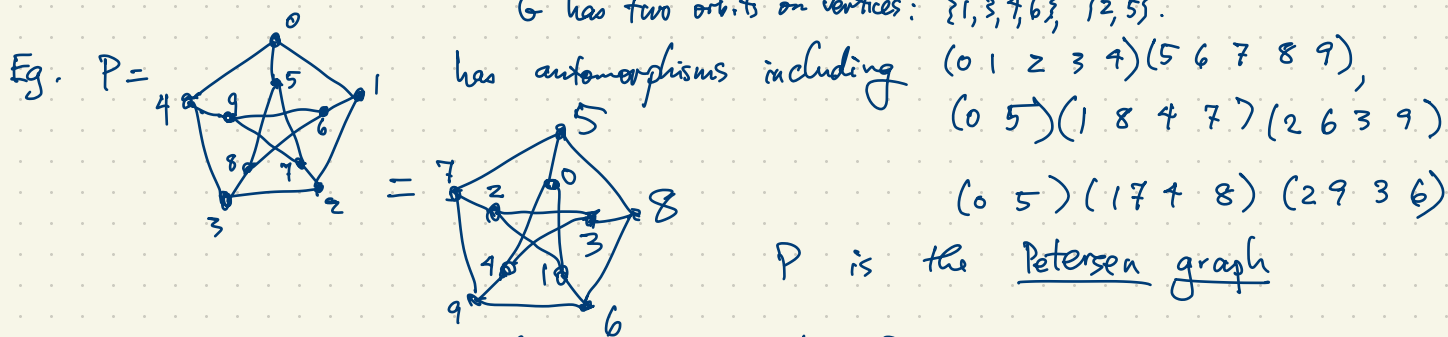 G has two orbits on vertices: {1,3,4,6}, {2,5}.
Eg. P=
has automorphisms including (0 1 2 3 4)(5 6 7 8 9),
(0 5)(1 8 4 7)(2 6 3 9)
(0 5)(1 7 4 8)(2 9 3 6)
0
5
4
9
1
6
8
7
3
2
=
5
7
2
0
8
3
4
1
9
6
P is the Petersen graph